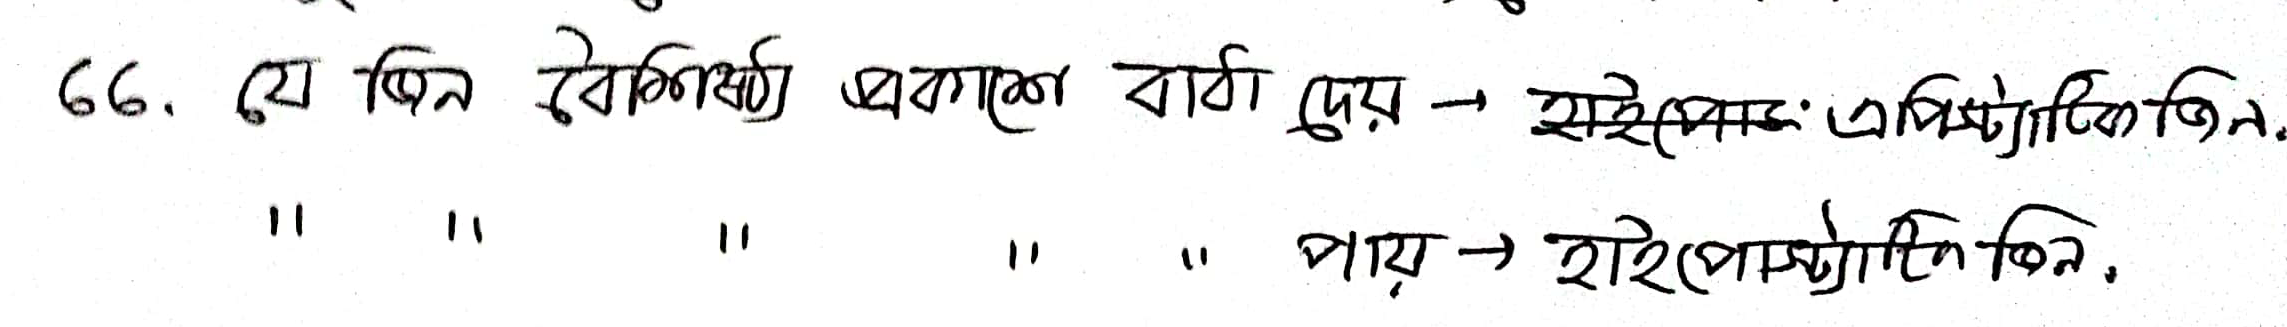 ৬৬. যে জিন বৈশিষ্ট্য প্রকাশে বাধা দেয় → এপিস্ট্যাটিক জিন.
" " " " " পায় → হাইপোস্ট্যাটিক জিন.